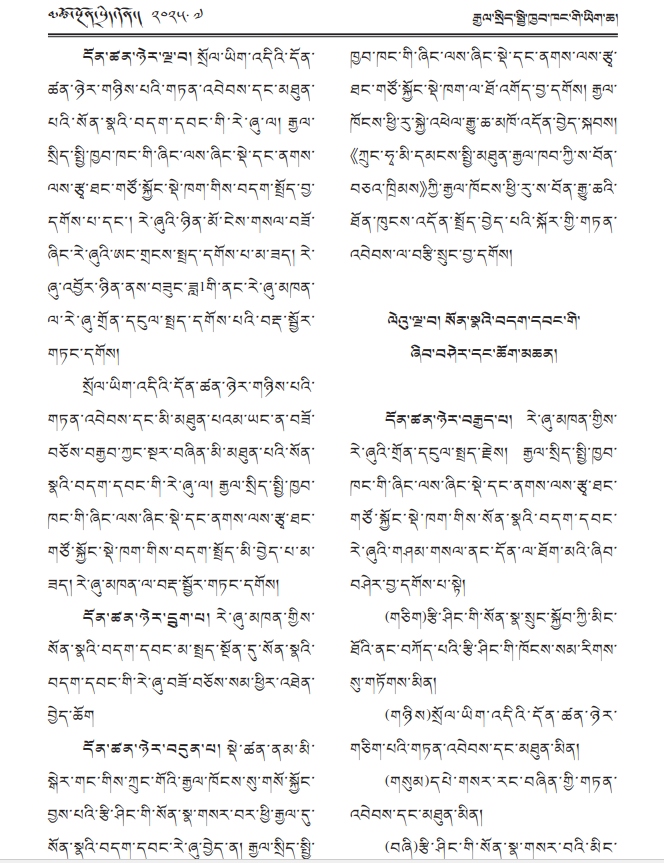 ༢༠༢༥.༧
རྒྱལ་སྲིད་སྤྱི་ཁྱབ་ཁང་གི་ཡིག་ཆ།
དོན་ཚན་ཉེར་ལྔ་བ། སྲོལ་ཡིག་འདིའི་དོན་
ཚན་ཉེར་གཉིས་པའི་གཏན་འབེབས་དང་མཐུན་
པའི་སོན་སྣའི་བདག་དབང་གི་རེ་ཞུ་ལ། རྒྱལ་
སྲིད་སྤྱི་ཁྱབ་ཁང་གི་ཞིང་ལས་ཞིང་སྡེ་དང་ནགས་
ལས་རྩྭ་ཐང་གཙོ་སྐྱོང་སྡེ་ཁག་གིས་བདག་སྤྲོད་བྱ་
དགོས་པ་དང་། རེ་ཞུའི་ཉིན་མོ་ངེས་གསལ་བཟོ་
ཞིང་རེ་ཞུའི་ཨང་གྲངས་སྤྲད་དགོས་པ་མ་ཟད། རེ་
ཞུ་འབྱོར་ཉིན་ནས་བཟུང་ཟླ1གི་ནང་རེ་ཞུ་མཁན་
ལ་རེ་ཞུ་གྲོན་དངུལ་སྤྲད་དགོས་པའི་བརྡ་སྦྱོར་
གཏང་དགོས།
སྲོལ་ཡིག་འདིའི་དོན་ཚན་ཉེར་གཉིས་པའི་
གཏན་འབེབས་དང་མི་མཐུན་པའམ་ཡང་ན་བཟོ་
བཅོས་བརྒྱབ་ཀྱང་སྔར་བཞིན་མི་མཐུན་པའི་སོན་
སྣའི་བདག་དབང་གི་རེ་ཞུ་ལ། རྒྱལ་སྲིད་སྤྱི་ཁྱབ་
ཁང་གི་ཞིང་ལས་ཞིང་སྡེ་དང་ནགས་ལས་རྩྭ་ཐང་
གཙོ་སྐྱོང་སྡེ་ཁག་གིས་བདག་སྤྲོད་མི་བྱེད་པ་མ་
ཟད། རེ་ཞུ་མཁན་ལ་བརྡ་སྦྱོར་གཏང་དགོས།
དོན་ཚན་ཉེར་དྲུག་པ། རེ་ཞུ་མཁན་གྱིས་
སོན་སྣའི་བདག་དབང་མ་སྤྲད་སྔོན་དུ་སོན་སྣའི་
བདག་དབང་གི་རེ་ཞུ་བཟོ་བཅོས་སམ་ཕྱིར་འཐེན་
བྱེད་ཆོག
དོན་ཚན་ཉེར་བདུན་པ། སྡེ་ཚན་ནམ་མི་
སྒེར་གང་གིས་ཀྲུང་གོའི་རྒྱལ་ཁོངས་སུ་གསོ་སྐྱོང་
བྱས་པའི་རྩི་ཤིང་གི་སོན་སྣ་གསར་བར་ཕྱི་རྒྱལ་དུ་
སོན་སྣའི་བདག་དབང་རེ་ཞུ་བྱེད་ན། རྒྱལ་སྲིད་སྤྱི་
ཁྱབ་ཁང་གི་ཞིང་ལས་ཞིང་སྡེ་དང་ནགས་ལས་རྩྭ་
ཐང་གཙོ་སྐྱོང་སྡེ་ཁག་ལ་ཐོ་འགོད་བྱ་དགོས། རྒྱལ་
ཁོངས་ཕྱི་རུ་སྐྱེ་འཕེལ་རྒྱུ་ཆ་མཁོ་འདོན་བྱེད་སྐབས།
《ཀྲུང་ཧྭ་མི་དམངས་སྤྱི་མཐུན་རྒྱལ་ཁབ་ཀྱི་ས་བོན་
བཅའ་ཁྲིམས》ཀྱི་རྒྱལ་ཁོངས་ཕྱི་རུ་ས་བོན་རྒྱུ་ཆའི་
ཐོན་ཁུངས་འདོན་སྤྲོད་བྱེད་པའི་སྐོར་གྱི་གཏན་
འབེབས་ལ་བརྩི་སྲུང་བྱ་དགོས།
ལེའུ་ལྔ་བ། སོན་སྣའི་བདག་དབང་གི་
ཞིབ་བཤེར་དང་ཆོག་མཆན།
དོན་ཚན་ཉེར་བརྒྱད་པ། རེ་ཞུ་མཁན་གྱིས་
རེ་ཞུའི་གྲོན་དངུལ་སྤྲད་རྗེས། རྒྱལ་སྲིད་སྤྱི་ཁྱབ་
ཁང་གི་ཞིང་ལས་ཞིང་སྡེ་དང་ནགས་ལས་རྩྭ་ཐང་
གཙོ་སྐྱོང་སྡེ་ཁག་གིས་སོན་སྣའི་བདག་དབང་
རེ་ཞུའི་གཤམ་གསལ་ནང་དོན་ལ་ཐོག་མའི་ཞིབ་
བཤེར་བྱ་དགོས་པ་སྟེ།
(གཅིག)རྩི་ཤིང་གི་སོན་སྣ་སྲུང་སྐྱོབ་ཀྱི་མིང་
ཐོའི་ནང་བཀོད་པའི་རྩི་ཤིང་གི་ཁོངས་སམ་རིགས་
སུ་གཏོགས་མིན།
(གཉིས)སྲོལ་ཡིག་འདིའི་དོན་ཚན་ཉེར་
གཅིག་པའི་གཏན་འབེབས་དང་མཐུན་མིན།
(གསུམ)དཔེ་གསར་རང་བཞིན་གྱི་གཏན་
འབེབས་དང་མཐུན་མིན།
(བཞི)རྩི་ཤིང་གི་སོན་སྣ་གསར་བའི་མིང་